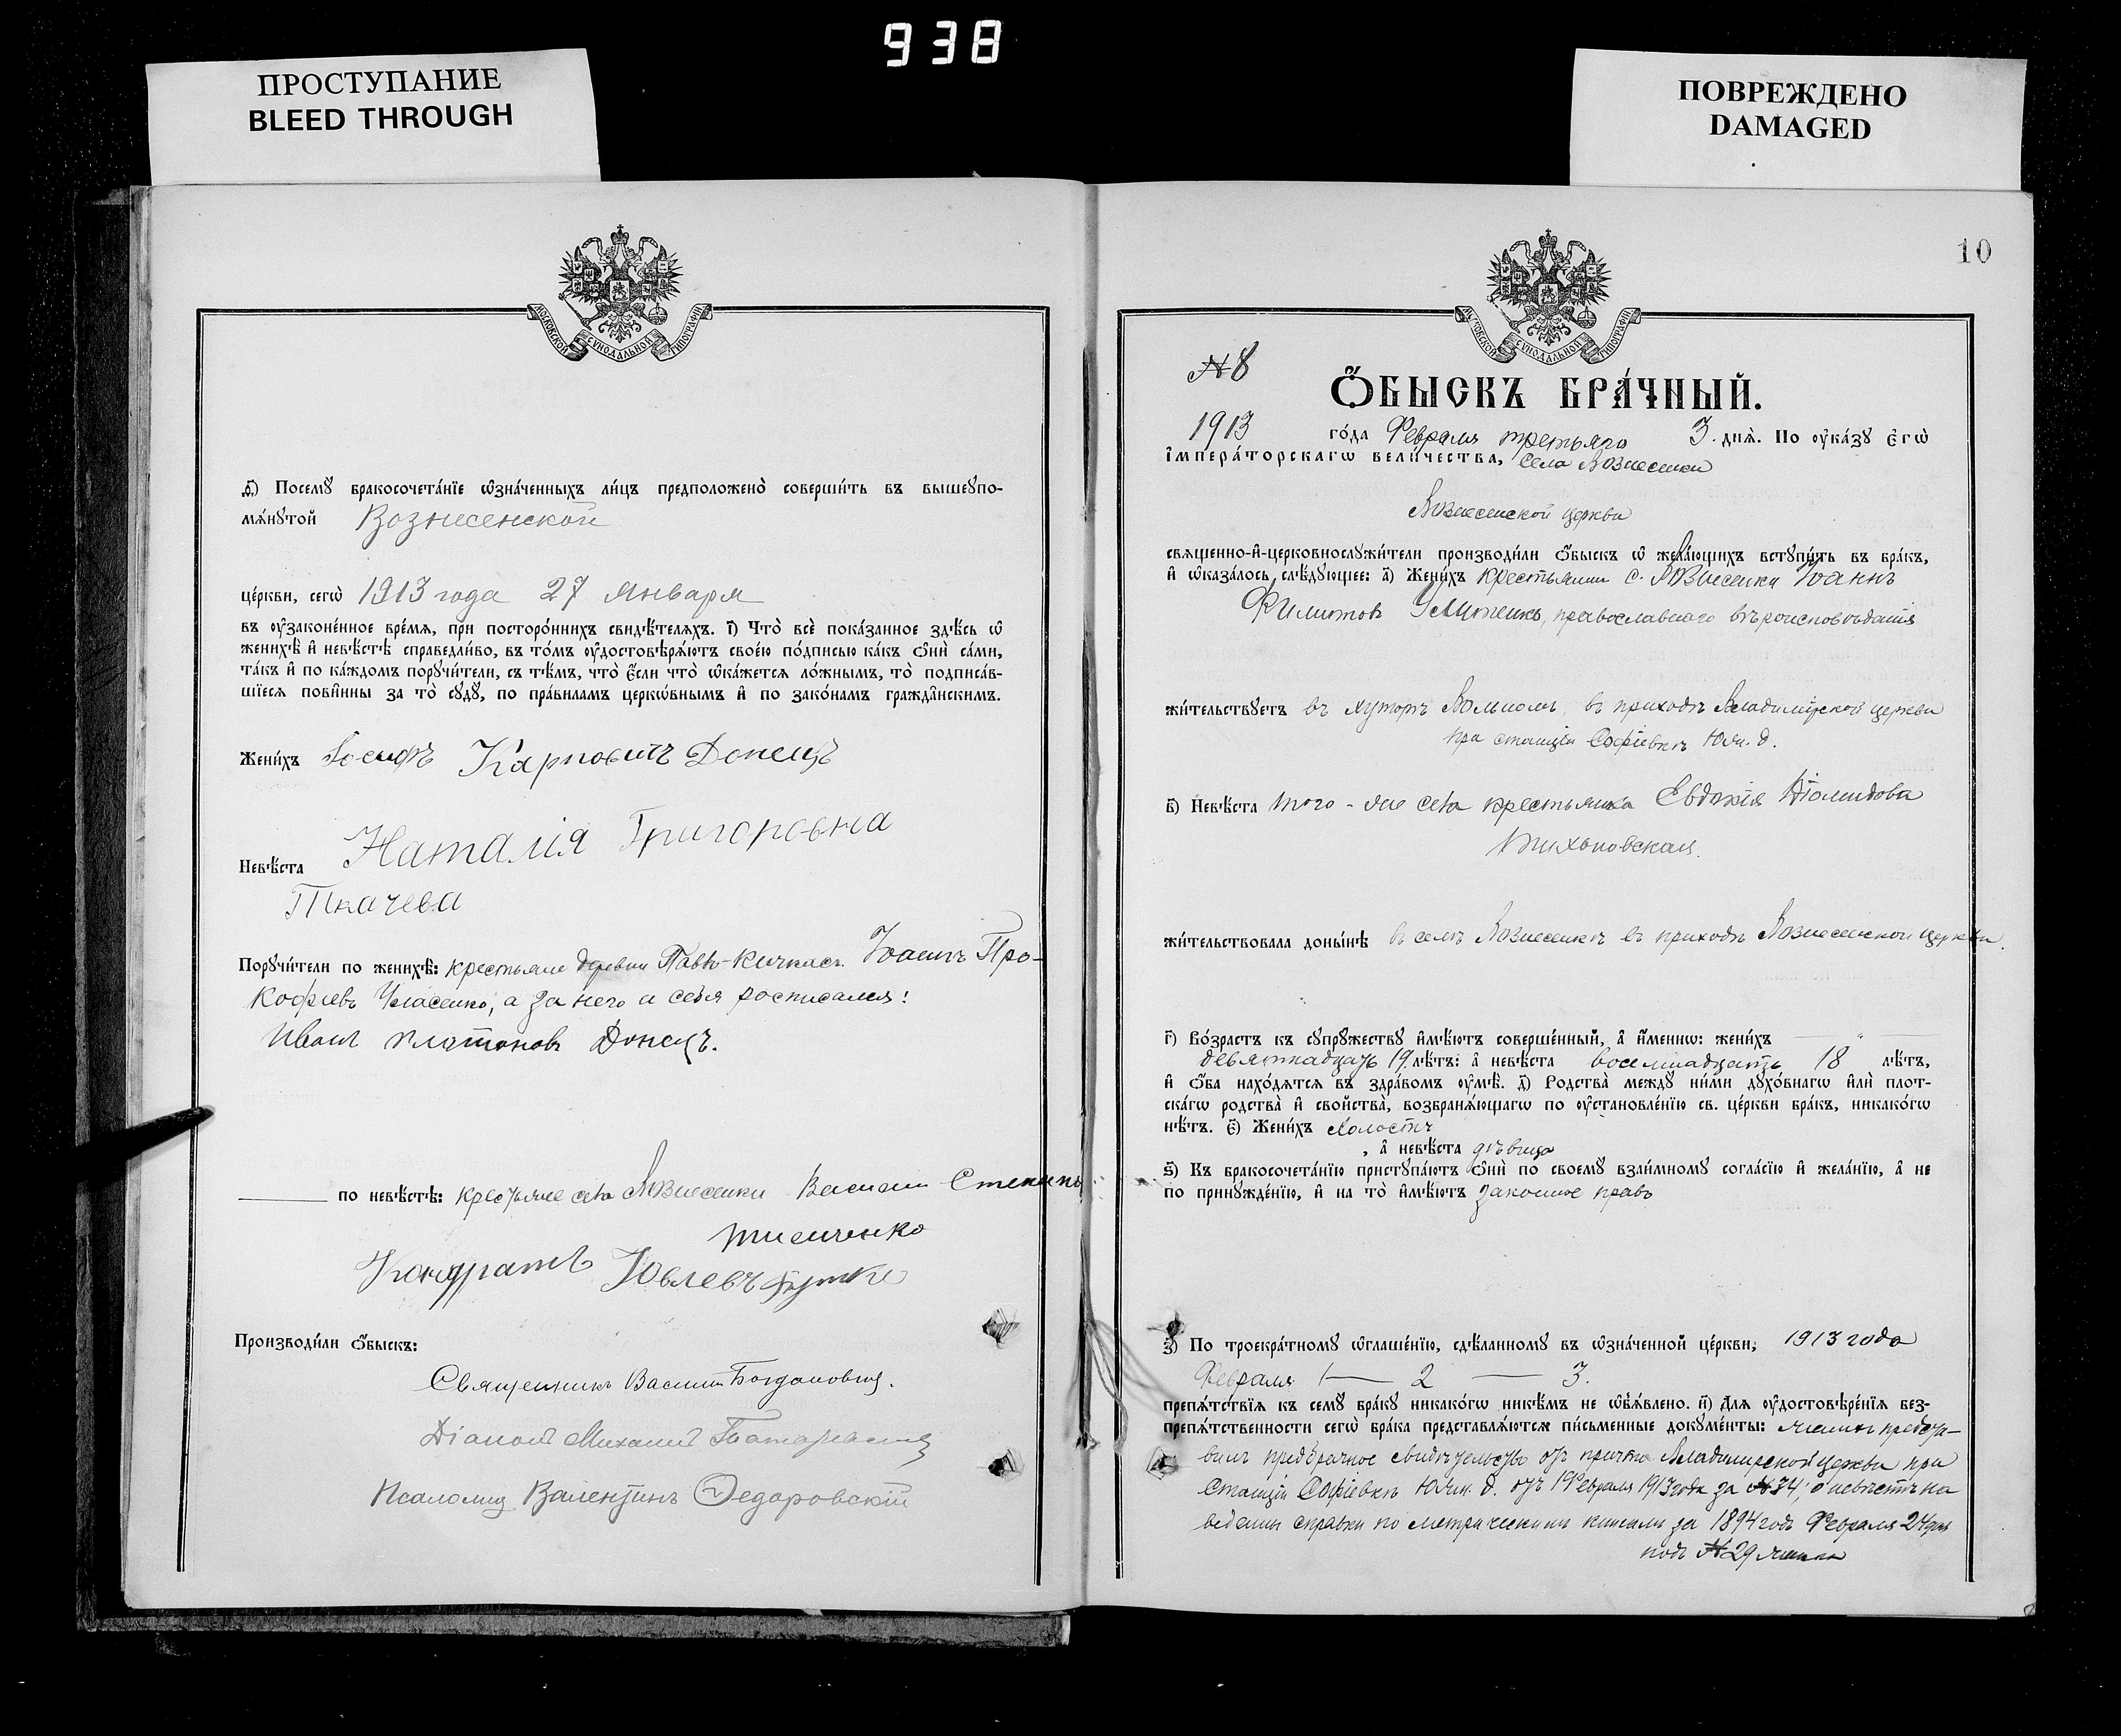 938
ПРОСТУПАНИЕ
BLEED THROUGH
ПОВРЕЖДЕНО
DAMAGED
МОСКОВСКОЙ СѴНОДАЛЬНОЙ ТИПОГРАФІИ
ѳ҃) Посемꙋ бракосочета́нїе ѡзна́ченныхъ ли́цъ предположено̀ соверши́ть въ вышеꙋпо-
мѧ́нꙋтой Вознесенской
це́ркви, сегѡ̀ 1913 года 27 Января
въ ᲂу҆законе́нное вре́мѧ, при посторо́ннихъ свидѣ́телѧхъ. і҃) Что̀ всѐ пока́занное здѣ́сь ѡ҆
женихѣ̀ и҆ невѣ́стѣ справедли́во, въ то́мъ ᲂу҆достовѣрѧ́ютъ свое́ю по́дписью ка́къ ѻ҆нѝ са́ми,
та́къ и҆ по ка́ждомъ порꙋчи́тели, съ тѣ́мъ, что̀ є҆́сли что̀ ѡ҆ка́жетсѧ ло́жнымъ, то̀ подписа́в-
шїесѧ пови́нны за то̀ сꙋдꙋ̀, по пра́виламъ церко́внымъ и҆ по зако́намъ гражда́нскимъ.
Жени́хъ Іосифъ Карповичъ Донецъ
Невѣ́ста Наталія Григоровна
Ткачева
Порꙋчи́тели по женихѣ̀: крестьяне деревни Павло-Кичкасъ Іоаннъ Про-
кофіевъ Власенко, а за него и себя росписался:
Иванъ Платоновъ Донецъ.
по невѣ́стѣ: крестьяне села Вознесенки Василій Степановъ
Тисиченко
Кондратъ Іовлевъ Бутко
Производи́ли ѻ҆́быскъ:
Священникъ Василій Богдановичъ.
Діаконъ Михаилъ
Псаломщ. Валентинъ Федоровскій
10
МОСКОВСКОЙ СѴНОДАЛЬНОЙ ТИПОГРАФІИ
№ 8
Ѻ҆́БЫСКЪ БРА́ЧНЫЙ.
1913 го́да Февраля третьяго 3. днѧ̀. По ᲂу҆ка́зꙋ є҆гѡ̀
і҆мпера́торскагѡ вели́чества, села Вознесенки
Вознесенской церкви
свѧще́нно-и҆-церковнослꙋжи́тели производи́ли ѻ҆́быскъ ѡ҆ жела́ющихъ встꙋпи́ть въ бра́къ,
и҆ ѡ҆каза́лось слѣ́дꙋющее: а҃) Жени́хъ крестьянин с. Вознесенки Іоаннъ
Филитовъ православнаго вѣроисповѣданія
жи́тельствꙋетъ въ хуторѣ въ приходѣ Владимірской церкви
при станціи Софіевкѣ Южн. д.
в҃) Невѣ́ста того-же села крестьянка Евдокія Діомидова
Тихоновская.
жи́тельствовала доны́нѣ въ селѣ Вознесенкѣ въ приходѣ Вознесенской церкви.
г҃) Во́зрастъ къ сꙋпрꙋ́жествꙋ и҆мѣ́ютъ соверше́нный, а҆ и҆́меннѡ: жени́хъ
девятнадцать 19. лѣ́тъ: а҆ невѣ́ста восемнадцать 18 лѣ́тъ,
и҆ ѻ҆́ба нахо́дѧтсѧ въ здра́вомъ ᲂу҆мѣ̀. д҃) Родства̀ междꙋ̀ ни́ми дꙋхо́внагѡ и҆лѝ пло́т-
скагѡ родства̀ и҆ сво́йства, возбранѧ́ющагѡ по ᲂу҆становле́нїю св. це́ркви бра́къ, никако́гѡ
нѣ́тъ. є҃) Жени́хъ холостъ
, а҆ невѣ́ста дѣвица
ѕ҃) Къ бракосочета́нїю пристꙋпа́ютъ ѻ҆нѝ по своемꙋ̀ взаи́мномꙋ согла́сїю и҆ жела́нїю, а҆ не
по принꙋжде́нїю, и҆ на то̀ и҆мѣ́ютъ законное право
з҃) По троекра́тномꙋ ѡ҆глаше́нїю, сдѣ́ланномꙋ въ ѡ҆зна́ченной це́ркви, 1913 года
Февраля 1 — 2 — 3.
препѧ́тствїѧ къ семꙋ̀ бра́кꙋ никако́гѡ никѣ́мъ не ѡ҆б̾ѧ́влено. и҃) Длѧ ᲂу҆достовѣре́нїѧ без-
препѧ́тственности сегѡ̀ бра́ка представлѧ́ютсѧ пи́сьменные докꙋме́нты: женихъ предста-
вилъ предбрачное свидѣтельство отъ причта Владимірской церкви при
станціи Софіевкѣ Южн. д. отъ 1 Февраля 1913 года за № 34, о невѣстѣ на
ведены справки по метрическимъ книгамъ за 1894 годъ Февраля 24 дня
подъ № 29